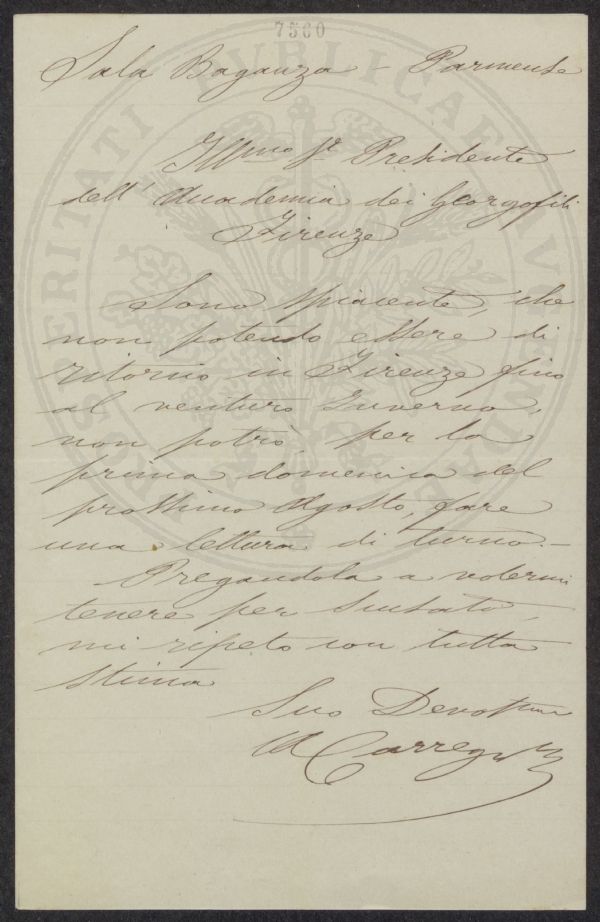 7560
Sala Baganza - Parmense
Illmo Sr Presidente
dell' Accademia dei Georgofili
Firenze
Sono spiacente, che
non potendo essere di
ritorno in Firenze fino
al venturo Inverno,
non potrò per la
prima domenica del
prossimo Agosto, fare
una lettura di turno.-
Pregandola a volermi
tenere per scusato,
mi ripeto con tutta
stima
Suo Devotmo
PROSPERITATI PUBLICAE AUGENDAE